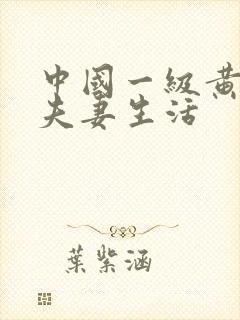 中國一級黃
夫妻生活
葉紫涵